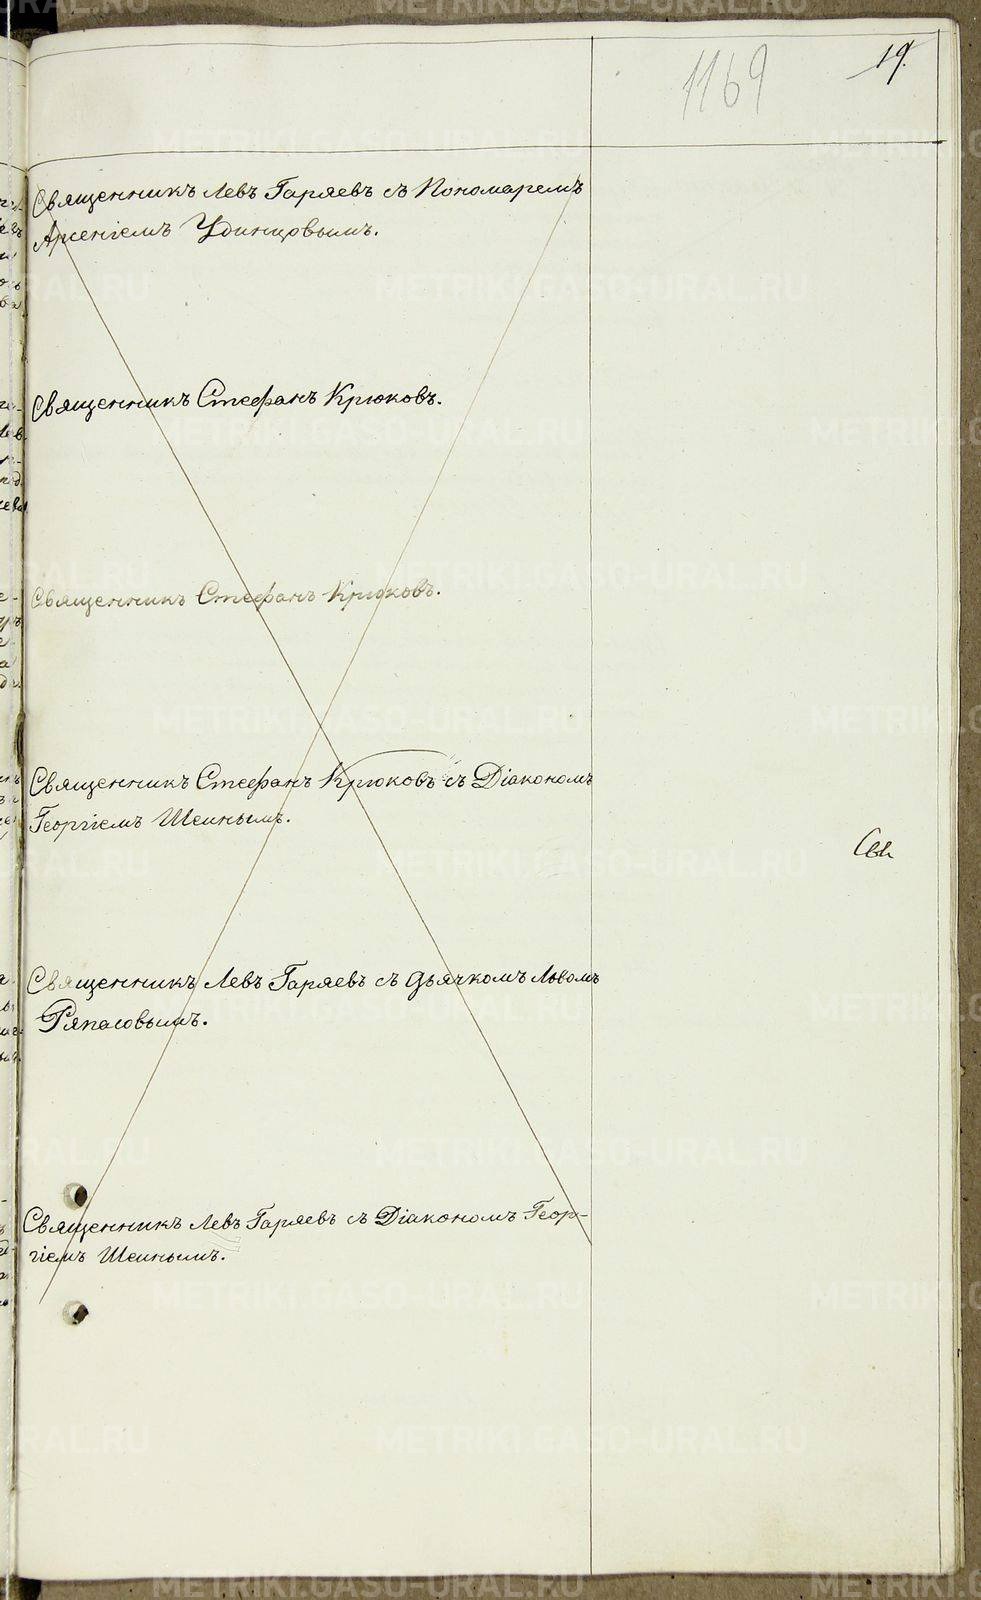 1169
19.
Священникъ Левъ Гаряевъ съ Пономаремъ
Арсеніемъ Удинцовымъ.
Священникъ Стефанъ Крюковъ.
Священникъ Стефанъ Крюковъ.
Священникъ Стефанъ Крюковъ съ Діакономъ
Георгіемъ Шеинымъ.
Священникъ Левъ Гаряевъ съ дьячкомъ Львомъ
Ряпасовымъ.
Священникъ Левъ Гаряевъ съ Діакономъ Геор-
гіемъ Шеинымъ.
METRIKI.GASO-URAL.RU